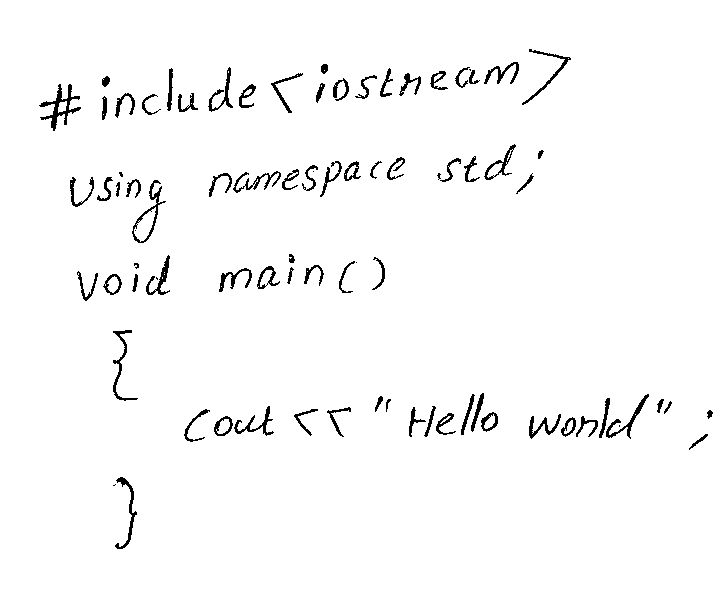 #include<iostream>
using namespace std;
void main()
{
cout<<"Hello world";
}